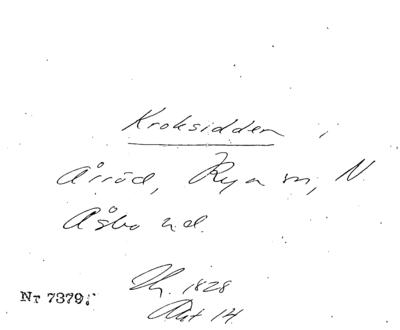 Kroksidden i
Årröd, Rya sn, N.
Åsbo hd.
Th. 1828
Akt 14.
Nr 7379.